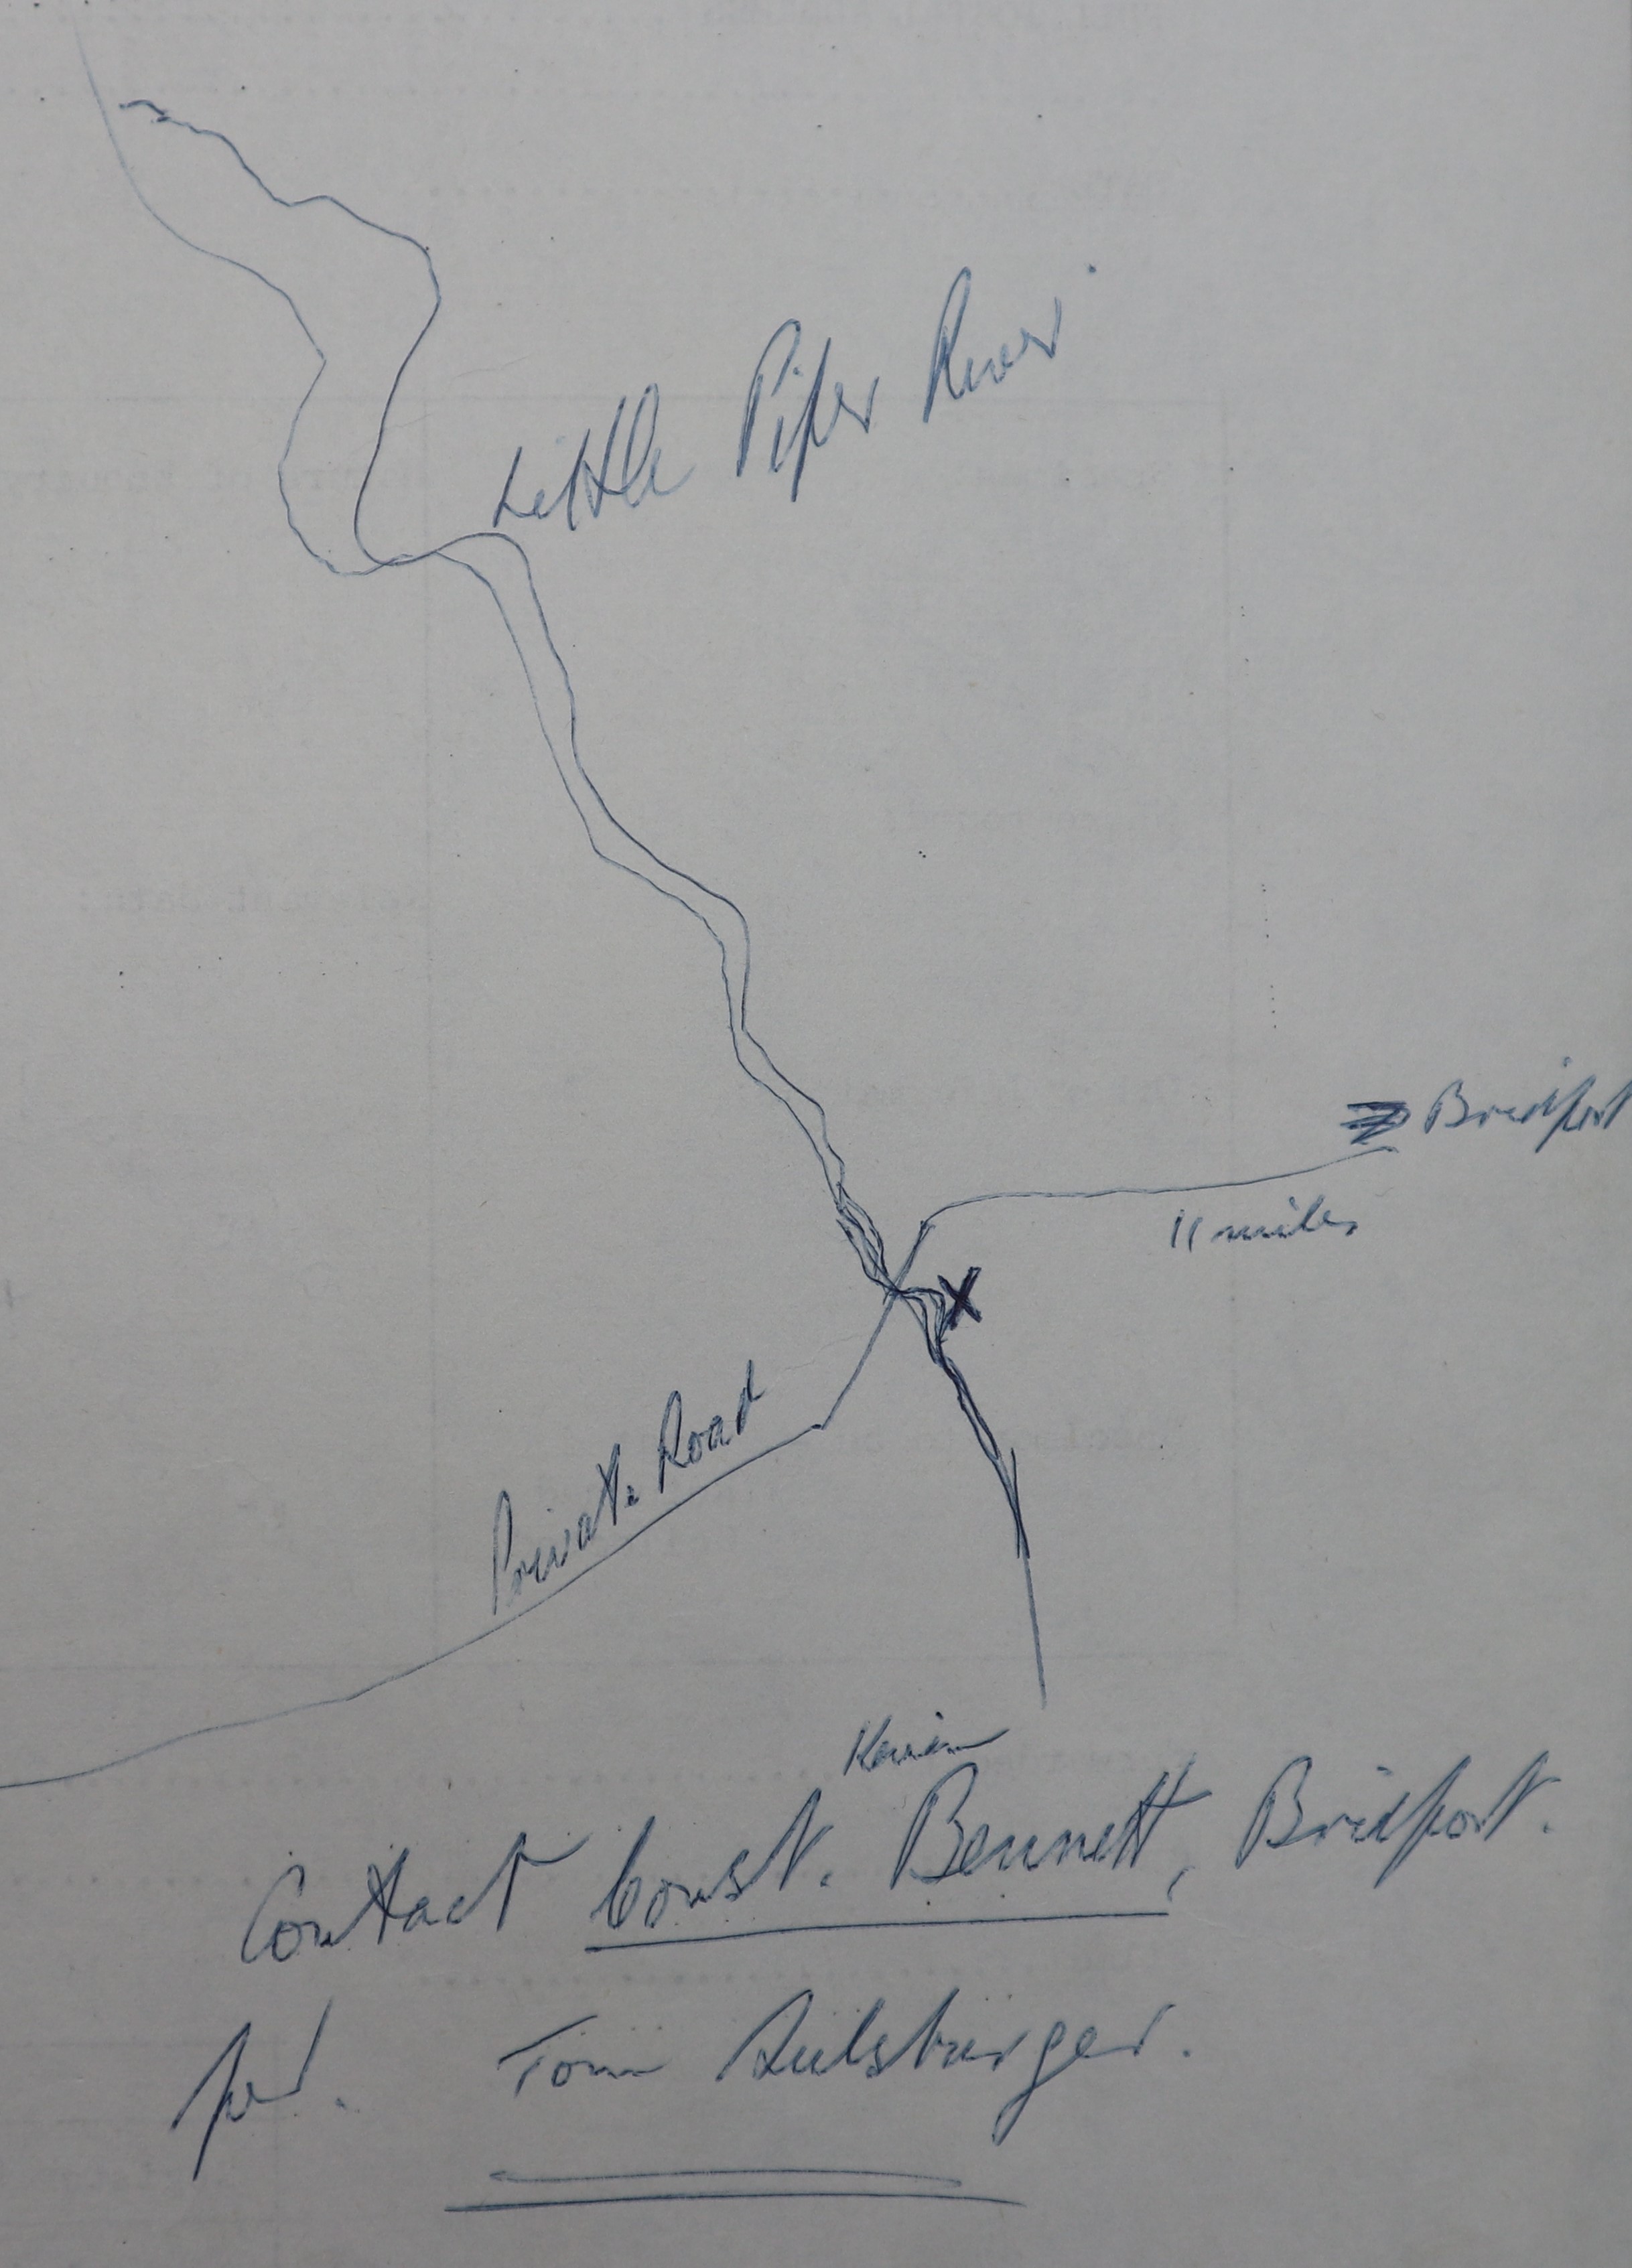 Little Piper River
Bridport
11 miles
X
Private Road
Kevin
Contact Const. Bennett, Bridport.
per. Tom